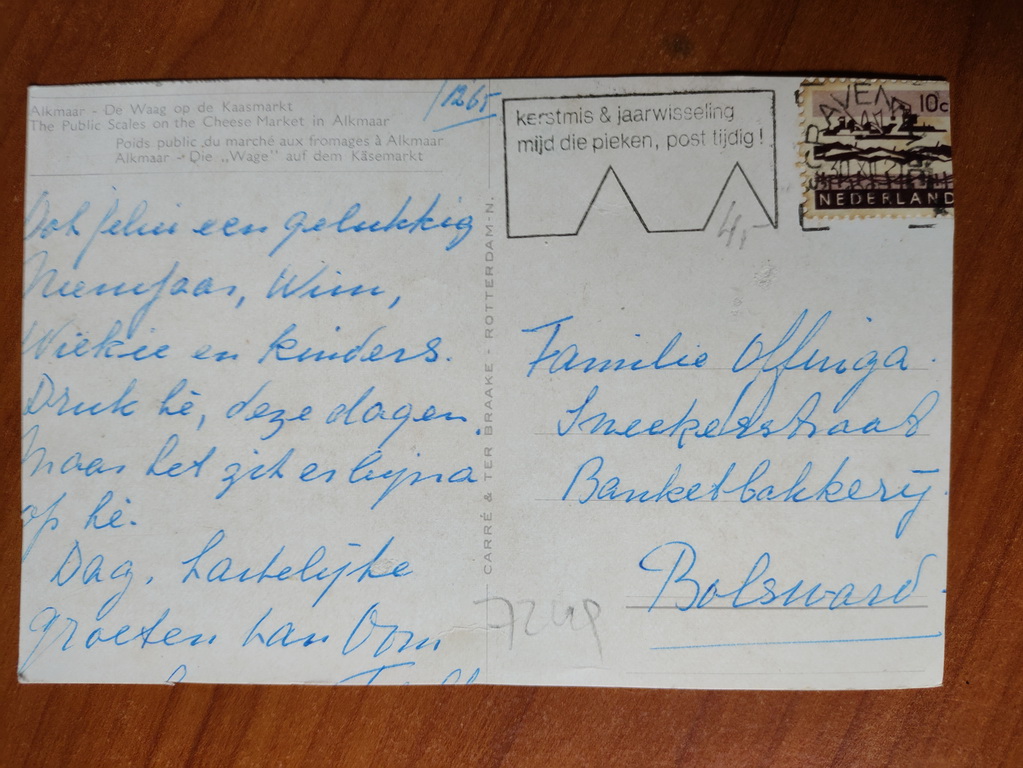 Alkmaar - De Waag op de Kaasmarkt
The Public Scales on the Cheese Market in Alkmaar
Poids public du marché aux fromages à Alkmaar
Alkmaar - Die „Wage" auf dem Käsemarkt
1265
Ook jelui een gelukkig
Nieuwjaar, Wim,
Wiekie en kinders.
Druk hè, deze dagen.
Maar het zit er bijna
op hè.
Dag, hartelijke
groeten van Oom
CARRÉ & TER BRAAKE - ROTTERDAM-N.
kerstmis & jaarwisseling
mijd die pieken, post tijdig!
10c
NEDERLAND
4,-
Familie Offinga.
Sneekerstraat
Banketbakkerij.
Bolsward.
7249